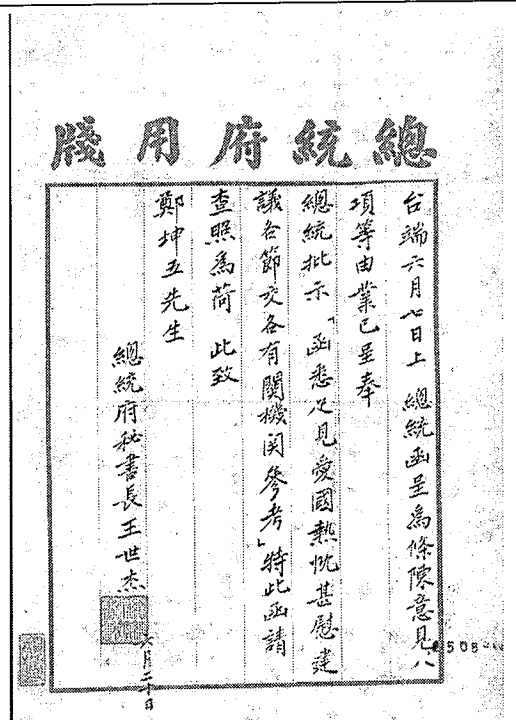 總統府用牋
台端六月七日上　總統函呈為條陳意見八
項等由業已呈奉
總統批示「函悉足見愛國熱忱甚慰建
議各節交各有關機関參考」特此函請
查照為荷　此致
鄭坤五先生
總統府秘書長王世杰
六月二十日